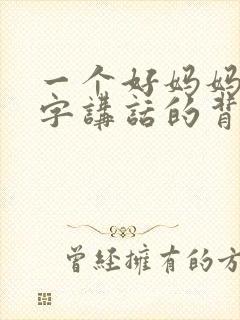 一个好妈妈
字講話的背
曾经擁有的方